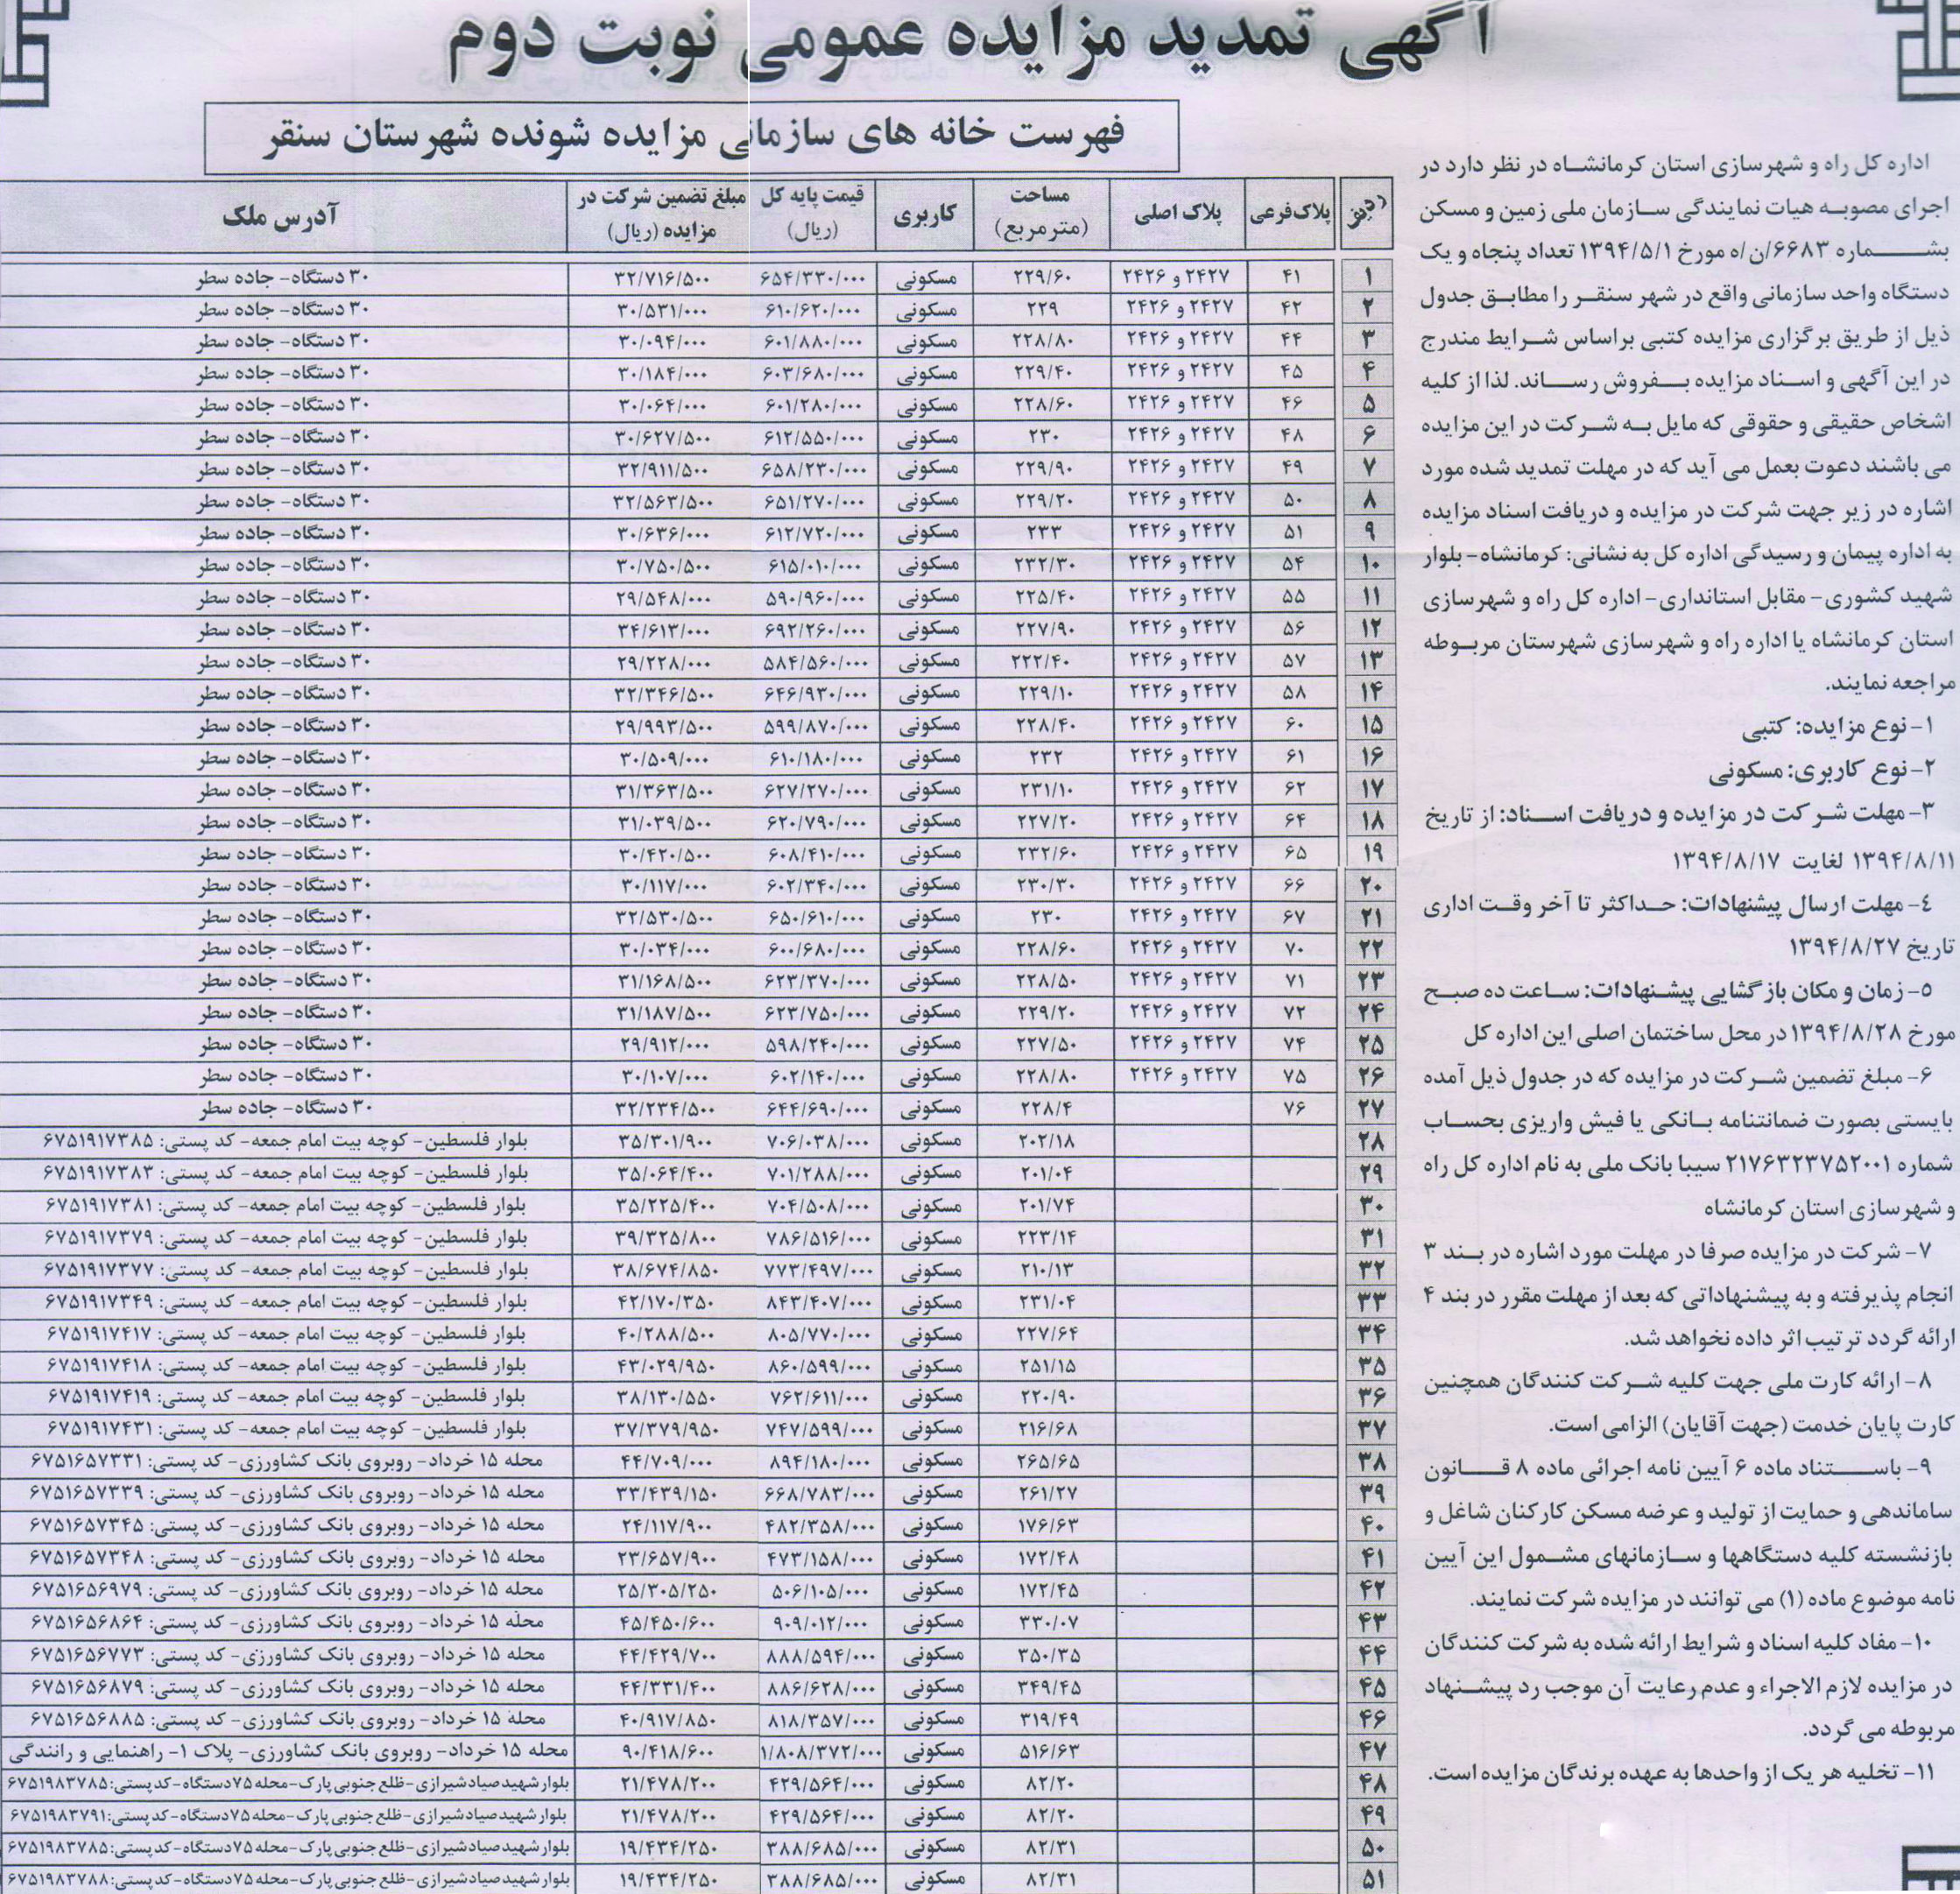 آگهی تمدید مزایده عمومی نوبت دوم
فهرست خانه های سازمانی مزایده شونده شهرستان سنقر
اداره کل راه و شهرسازی استان کرمانشاه در نظر دارد در
اجرای مصوبه هیات نمایندگی سازمان ملی زمین و مسکن
بشماره ۶۶۸۳/ن/ه مورخ ۱۳۹۴/۵/۱ تعداد پنجاه و یک
دستگاه واحد سازمانی واقع در شهر سنقر را مطابق جدول
ذیل از طریق برگزاری مزایده کتبی براساس شرایط مندرج
در این آگهی و اسناد مزایده بفروش رساند. لذا از کلیه
اشخاص حقیقی و حقوقی که مایل به شرکت در این مزایده
می باشند دعوت بعمل می آید که در مهلت تمدید شده مورد
اشاره در زیر جهت شرکت در مزایده و دریافت اسناد مزایده
به اداره پیمان و رسیدگی اداره کل به نشانی: کرمانشاه- بلوار
شهید کشوری- مقابل استانداری- اداره کل راه و شهرسازی
استان کرمانشاه یا اداره راه و شهرسازی شهرستان مربوطه
مراجعه نمایند.
۱- نوع مزایده: کتبی
۲- نوع کاربری: مسکونی
۳- مهلت شرکت در مزایده و دریافت اسناد: از تاریخ
۱۳۹۴/۸/۱۱ لغایت ۱۳۹۴/۸/۱۷
۴- مهلت ارسال پیشنهادات: حداکثر تا آخر وقت اداری
تاریخ ۱۳۹۴/۸/۲۷
۵- زمان و مکان بازگشایی پیشنهادات: ساعت ده صبح
مورخ ۱۳۹۴/۸/۲۸ در محل ساختمان اصلی این اداره کل
۶- مبلغ تضمین شرکت در مزایده که در جدول ذیل آمده
بایستی بصورت ضمانتنامه بانکی یا فیش واریزی بحساب
شماره ۲۱۷۶۳۲۳۷۵۲۰۰۱ سیبا بانک ملی به نام اداره کل راه
و شهرسازی استان کرمانشاه
۷- شرکت در مزایده صرفا در مهلت مورد اشاره در بند ۳
انجام پذیرفته و به پیشنهاداتی که بعد از مهلت مقرر در بند ۴
ارائه گردد ترتیب اثر داده نخواهد شد.
۸- ارائه کارت ملی جهت کلیه شرکت کنندگان همچنین
کارت پایان خدمت (جهت آقایان) الزامی است.
۹- باستناد ماده ۶ آیین نامه اجرائی ماده ۸ قانون
ساماندهی و حمایت از تولید و عرضه مسکن کارکنان شاغل و
بازنشسته کلیه دستگاهها و سازمانهای مشمول این آیین
نامه موضوع ماده (۱) می توانند در مزایده شرکت نمایند.
۱۰- مفاد کلیه اسناد و شرایط ارائه شده به شرکت کنندگان
در مزایده لازم الاجراء و عدم رعایت آن موجب رد پیشنهاد
مربوطه می گردد.
۱۱- تخلیه هر یک از واحدها به عهده برندگان مزایده است.
ردیف پلاک فرعی پلاک اصلی مساحت (مترمربع) کاربری قیمت پایه کل (ریال) مبلغ تضمین شرکت در مزایده (ریال) آدرس ملک
۱ ۴۱ ۲۴۲۷ و ۲۴۲۶ ۲۲۹/۶۰ مسکونی ۶۵۴/۳۳۰/۰۰۰ ۳۲/۷۱۶/۵۰۰ ۳۰ دستگاه- جاده سطر
۲ ۴۲ ۲۴۲۷ و ۲۴۲۶ ۲۲۹ مسکونی ۶۱۰/۶۲۰/۰۰۰ ۳۰/۵۳۱/۰۰۰ ۳۰ دستگاه- جاده سطر
۳ ۴۴ ۲۴۲۷ و ۲۴۲۶ ۲۲۸/۸۰ مسکونی ۶۰۱/۸۸۰/۰۰۰ ۳۰/۰۹۴/۰۰۰ ۳۰ دستگاه- جاده سطر
۴ ۴۵ ۲۴۲۷ و ۲۴۲۶ ۲۲۹/۴۰ مسکونی ۶۰۳/۶۸۰/۰۰۰ ۳۰/۱۸۴/۰۰۰ ۳۰ دستگاه- جاده سطر
۵ ۴۶ ۲۴۲۷ و ۲۴۲۶ ۲۲۸/۶۰ مسکونی ۶۰۱/۲۸۰/۰۰۰ ۳۰/۰۶۴/۰۰۰ ۳۰ دستگاه- جاده سطر
۶ ۴۸ ۲۴۲۷ و ۲۴۲۶ ۲۳۰ مسکونی ۶۱۲/۵۵۰/۰۰۰ ۳۰/۶۲۷/۵۰۰ ۳۰ دستگاه- جاده سطر
۷ ۴۹ ۲۴۲۷ و ۲۴۲۶ ۲۲۹/۹۰ مسکونی ۶۵۸/۲۳۰/۰۰۰ ۳۲/۹۱۱/۵۰۰ ۳۰ دستگاه- جاده سطر
۸ ۵۰ ۲۴۲۷ و ۲۴۲۶ ۲۲۹/۲۰ مسکونی ۶۵۱/۲۷۰/۰۰۰ ۳۲/۵۶۳/۵۰۰ ۳۰ دستگاه- جاده سطر
۹ ۵۱ ۲۴۲۷ و ۲۴۲۶ ۲۳۳ مسکونی ۶۱۲/۷۲۰/۰۰۰ ۳۰/۶۳۶/۰۰۰ ۳۰ دستگاه- جاده سطر
۱۰ ۵۴ ۲۴۲۷ و ۲۴۲۶ ۲۳۲/۳۰ مسکونی ۶۱۵/۰۱۰/۰۰۰ ۳۰/۷۵۰/۵۰۰ ۳۰ دستگاه- جاده سطر
۱۱ ۵۵ ۲۴۲۷ و ۲۴۲۶ ۲۲۵/۴۰ مسکونی ۵۹۰/۹۶۰/۰۰۰ ۲۹/۵۴۸/۰۰۰ ۳۰ دستگاه- جاده سطر
۱۲ ۵۶ ۲۴۲۷ و ۲۴۲۶ ۲۲۷/۹۰ مسکونی ۶۹۲/۲۶۰/۰۰۰ ۳۴/۶۱۳/۰۰۰ ۳۰ دستگاه- جاده سطر
۱۳ ۵۷ ۲۴۲۷ و ۲۴۲۶ ۲۲۲/۴۰ مسکونی ۵۸۴/۵۶۰/۰۰۰ ۲۹/۲۲۸/۰۰۰ ۳۰ دستگاه- جاده سطر
۱۴ ۵۸ ۲۴۲۷ و ۲۴۲۶ ۲۲۹/۱۰ مسکونی ۶۴۶/۹۳۰/۰۰۰ ۳۲/۳۴۶/۵۰۰ ۳۰ دستگاه- جاده سطر
۱۵ ۶۰ ۲۴۲۷ و ۲۴۲۶ ۲۲۸/۴۰ مسکونی ۵۹۹/۸۷۰/۰۰۰ ۲۹/۹۹۳/۵۰۰ ۳۰ دستگاه- جاده سطر
۱۶ ۶۱ ۲۴۲۷ و ۲۴۲۶ ۲۳۲ مسکونی ۶۱۰/۱۸۰/۰۰۰ ۳۰/۵۰۹/۰۰۰ ۳۰ دستگاه- جاده سطر
۱۷ ۶۲ ۲۴۲۷ و ۲۴۲۶ ۲۳۱/۱۰ مسکونی ۶۲۷/۲۷۰/۰۰۰ ۳۱/۳۶۳/۵۰۰ ۳۰ دستگاه- جاده سطر
۱۸ ۶۴ ۲۴۲۷ و ۲۴۲۶ ۲۲۷/۲۰ مسکونی ۶۲۰/۷۹۰/۰۰۰ ۳۱/۰۳۹/۵۰۰ ۳۰ دستگاه- جاده سطر
۱۹ ۶۵ ۲۴۲۷ و ۲۴۲۶ ۲۳۲/۶۰ مسکونی ۶۰۸/۴۱۰/۰۰۰ ۳۰/۴۲۰/۵۰۰ ۳۰ دستگاه- جاده سطر
۲۰ ۶۶ ۲۴۲۷ و ۲۴۲۶ ۲۳۰/۳۰ مسکونی ۶۰۲/۳۴۰/۰۰۰ ۳۰/۱۱۷/۰۰۰ ۳۰ دستگاه- جاده سطر
۲۱ ۶۷ ۲۴۲۷ و ۲۴۲۶ ۲۳۰ مسکونی ۶۵۰/۶۱۰/۰۰۰ ۳۲/۵۳۰/۵۰۰ ۳۰ دستگاه- جاده سطر
۲۲ ۷۰ ۲۴۲۷ و ۲۴۲۶ ۲۲۸/۶۰ مسکونی ۶۰۰/۶۸۰/۰۰۰ ۳۰/۰۳۴/۰۰۰ ۳۰ دستگاه- جاده سطر
۲۳ ۷۱ ۲۴۲۷ و ۲۴۲۶ ۲۲۸/۵۰ مسکونی ۶۲۳/۳۷۰/۰۰۰ ۳۱/۱۶۸/۵۰۰ ۳۰ دستگاه- جاده سطر
۲۴ ۷۲ ۲۴۲۷ و ۲۴۲۶ ۲۲۹/۲۰ مسکونی ۶۲۳/۷۵۰/۰۰۰ ۳۱/۱۸۷/۵۰۰ ۳۰ دستگاه- جاده سطر
۲۵ ۷۴ ۲۴۲۷ و ۲۴۲۶ ۲۲۷/۵۰ مسکونی ۵۹۸/۲۴۰/۰۰۰ ۲۹/۹۱۲/۰۰۰ ۳۰ دستگاه- جاده سطر
۲۶ ۷۵ ۲۴۲۷ و ۲۴۲۶ ۲۲۸/۸۰ مسکونی ۶۰۲/۱۴۰/۰۰۰ ۳۰/۱۰۷/۰۰۰ ۳۰ دستگاه- جاده سطر
۲۷ ۷۶ ۲۲۸/۴ مسکونی ۶۴۴/۶۹۰/۰۰۰ ۳۲/۲۳۴/۵۰۰ ۳۰ دستگاه- جاده سطر
۲۸ ۲۰۲/۱۸ مسکونی ۷۰۶/۰۳۸/۰۰۰ ۳۵/۳۰۱/۹۰۰ بلوار فلسطین- کوچه بیت امام جمعه- کد پستی: ۶۷۵۱۹۱۷۳۸۵
۲۹ ۲۰۱/۰۴ مسکونی ۷۰۱/۲۸۸/۰۰۰ ۳۵/۰۶۴/۴۰۰ بلوار فلسطین- کوچه بیت امام جمعه- کد پستی: ۶۷۵۱۹۱۷۳۸۳
۳۰ ۲۰۱/۷۴ مسکونی ۷۰۴/۵۰۸/۰۰۰ ۳۵/۲۲۵/۴۰۰ بلوار فلسطین- کوچه بیت امام جمعه- کد پستی: ۶۷۵۱۹۱۷۳۸۱
۳۱ ۲۲۳/۱۴ مسکونی ۷۸۶/۵۱۶/۰۰۰ ۳۹/۳۲۵/۸۰۰ بلوار فلسطین- کوچه بیت امام جمعه- کد پستی: ۶۷۵۱۹۱۷۳۷۹
۳۲ ۲۱۰/۱۳ مسکونی ۷۷۳/۴۹۷/۰۰۰ ۳۸/۶۷۴/۸۵۰ بلوار فلسطین- کوچه بیت امام جمعه- کد پستی: ۶۷۵۱۹۱۷۳۷۷
۳۳ ۲۳۱/۰۴ مسکونی ۸۴۳/۴۰۷/۰۰۰ ۴۲/۱۷۰/۳۵۰ بلوار فلسطین- کوچه بیت امام جمعه- کد پستی: ۶۷۵۱۹۱۷۳۴۹
۳۴ ۲۲۷/۶۴ مسکونی ۸۰۵/۷۷۰/۰۰۰ ۴۰/۲۸۸/۵۰۰ بلوار فلسطین- کوچه بیت امام جمعه- کد پستی: ۶۷۵۱۹۱۷۴۱۷
۳۵ ۲۵۱/۱۵ مسکونی ۸۶۰/۵۹۹/۰۰۰ ۴۳/۰۲۹/۹۵۰ بلوار فلسطین- کوچه بیت امام جمعه- کد پستی: ۶۷۵۱۹۱۷۴۱۸
۳۶ ۲۲۰/۹۰ مسکونی ۷۶۲/۶۱۱/۰۰۰ ۳۸/۱۳۰/۵۵۰ بلوار فلسطین- کوچه بیت امام جمعه- کد پستی: ۶۷۵۱۹۱۷۴۱۹
۳۷ ۲۱۶/۶۸ مسکونی ۷۴۷/۵۹۹/۰۰۰ ۳۷/۳۷۹/۹۵۰ بلوار فلسطین- کوچه بیت امام جمعه- کد پستی: ۶۷۵۱۹۱۷۴۳۱
۳۸ ۲۶۵/۶۵ مسکونی ۸۹۴/۱۸۰/۰۰۰ ۴۴/۷۰۹/۰۰۰ محله ۱۵ خرداد- روبروی بانک کشاورزی- کد پستی: ۶۷۵۱۶۵۷۳۳۱
۳۹ ۲۶۱/۲۷ مسکونی ۶۶۸/۷۸۳/۰۰۰ ۳۳/۴۳۹/۱۵۰ محله ۱۵ خرداد- روبروی بانک کشاورزی- کد پستی: ۶۷۵۱۶۵۷۳۳۹
۴۰ ۱۷۶/۶۳ مسکونی ۴۸۲/۳۵۸/۰۰۰ ۲۴/۱۱۷/۹۰۰ محله ۱۵ خرداد- روبروی بانک کشاورزی- کد پستی: ۶۷۵۱۶۵۷۳۴۵
۴۱ ۱۷۲/۴۸ مسکونی ۴۷۳/۱۵۸/۰۰۰ ۲۳/۶۵۷/۹۰۰ محله ۱۵ خرداد- روبروی بانک کشاورزی- کد پستی: ۶۷۵۱۶۵۷۳۴۸
۴۲ ۱۷۲/۴۵ مسکونی ۵۰۶/۱۰۵/۰۰۰ ۲۵/۳۰۵/۲۵۰ محله ۱۵ خرداد- روبروی بانک کشاورزی- کد پستی: ۶۷۵۱۶۵۶۹۷۹
۴۳ ۳۳۰/۰۷ مسکونی ۹۰۹/۰۱۲/۰۰۰ ۴۵/۴۵۰/۶۰۰ محله ۱۵ خرداد- روبروی بانک کشاورزی- کد پستی: ۶۷۵۱۶۵۶۸۶۴
۴۴ ۳۵۰/۳۵ مسکونی ۸۸۸/۵۹۴/۰۰۰ ۴۴/۴۲۹/۷۰۰ محله ۱۵ خرداد- روبروی بانک کشاورزی- کد پستی: ۶۷۵۱۶۵۶۷۷۳
۴۵ ۳۴۹/۴۵ مسکونی ۸۸۶/۶۲۸/۰۰۰ ۴۴/۳۳۱/۴۰۰ محله ۱۵ خرداد- روبروی بانک کشاورزی- کد پستی: ۶۷۵۱۶۵۶۸۷۹
۴۶ ۳۱۹/۴۹ مسکونی ۸۱۸/۳۵۷/۰۰۰ ۴۰/۹۱۷/۸۵۰ محله ۱۵ خرداد- روبروی بانک کشاورزی- کد پستی: ۶۷۵۱۶۵۶۸۸۵
۴۷ ۵۱۶/۶۳ مسکونی ۱/۸۰۸/۳۷۲/۰۰۰ ۹۰/۴۱۸/۶۰۰ محله ۱۵ خرداد- روبروی بانک کشاورزی- پلاک ۱- راهنمایی و رانندگی
۴۸ ۸۲/۲۰ مسکونی ۴۲۹/۵۶۴/۰۰۰ ۲۱/۴۷۸/۲۰۰ بلوار شهید صیاد شیرازی- ظلع جنوبی پارک- محله ۷۵ دستگاه- کد پستی: ۶۷۵۱۹۸۳۷۸۵
۴۹ ۸۲/۲۰ مسکونی ۴۲۹/۵۶۴/۰۰۰ ۲۱/۴۷۸/۲۰۰ بلوار شهید صیاد شیرازی- ظلع جنوبی پارک- محله ۷۵ دستگاه- کد پستی: ۶۷۵۱۹۸۳۷۹۱
۵۰ ۸۲/۳۱ مسکونی ۳۸۸/۶۸۵/۰۰۰ ۱۹/۴۳۴/۲۵۰ بلوار شهید صیاد شیرازی- ظلع جنوبی پارک- محله ۷۵ دستگاه- کد پستی: ۶۷۵۱۹۸۳۷۸۵
۵۱ ۸۲/۳۱ مسکونی ۳۸۸/۶۸۵/۰۰۰ ۱۹/۴۳۴/۲۵۰ بلوار شهید صیاد شیرازی- ظلع جنوبی پارک- محله ۷۵ دستگاه- کد پستی: ۶۷۵۱۹۸۳۷۸۸